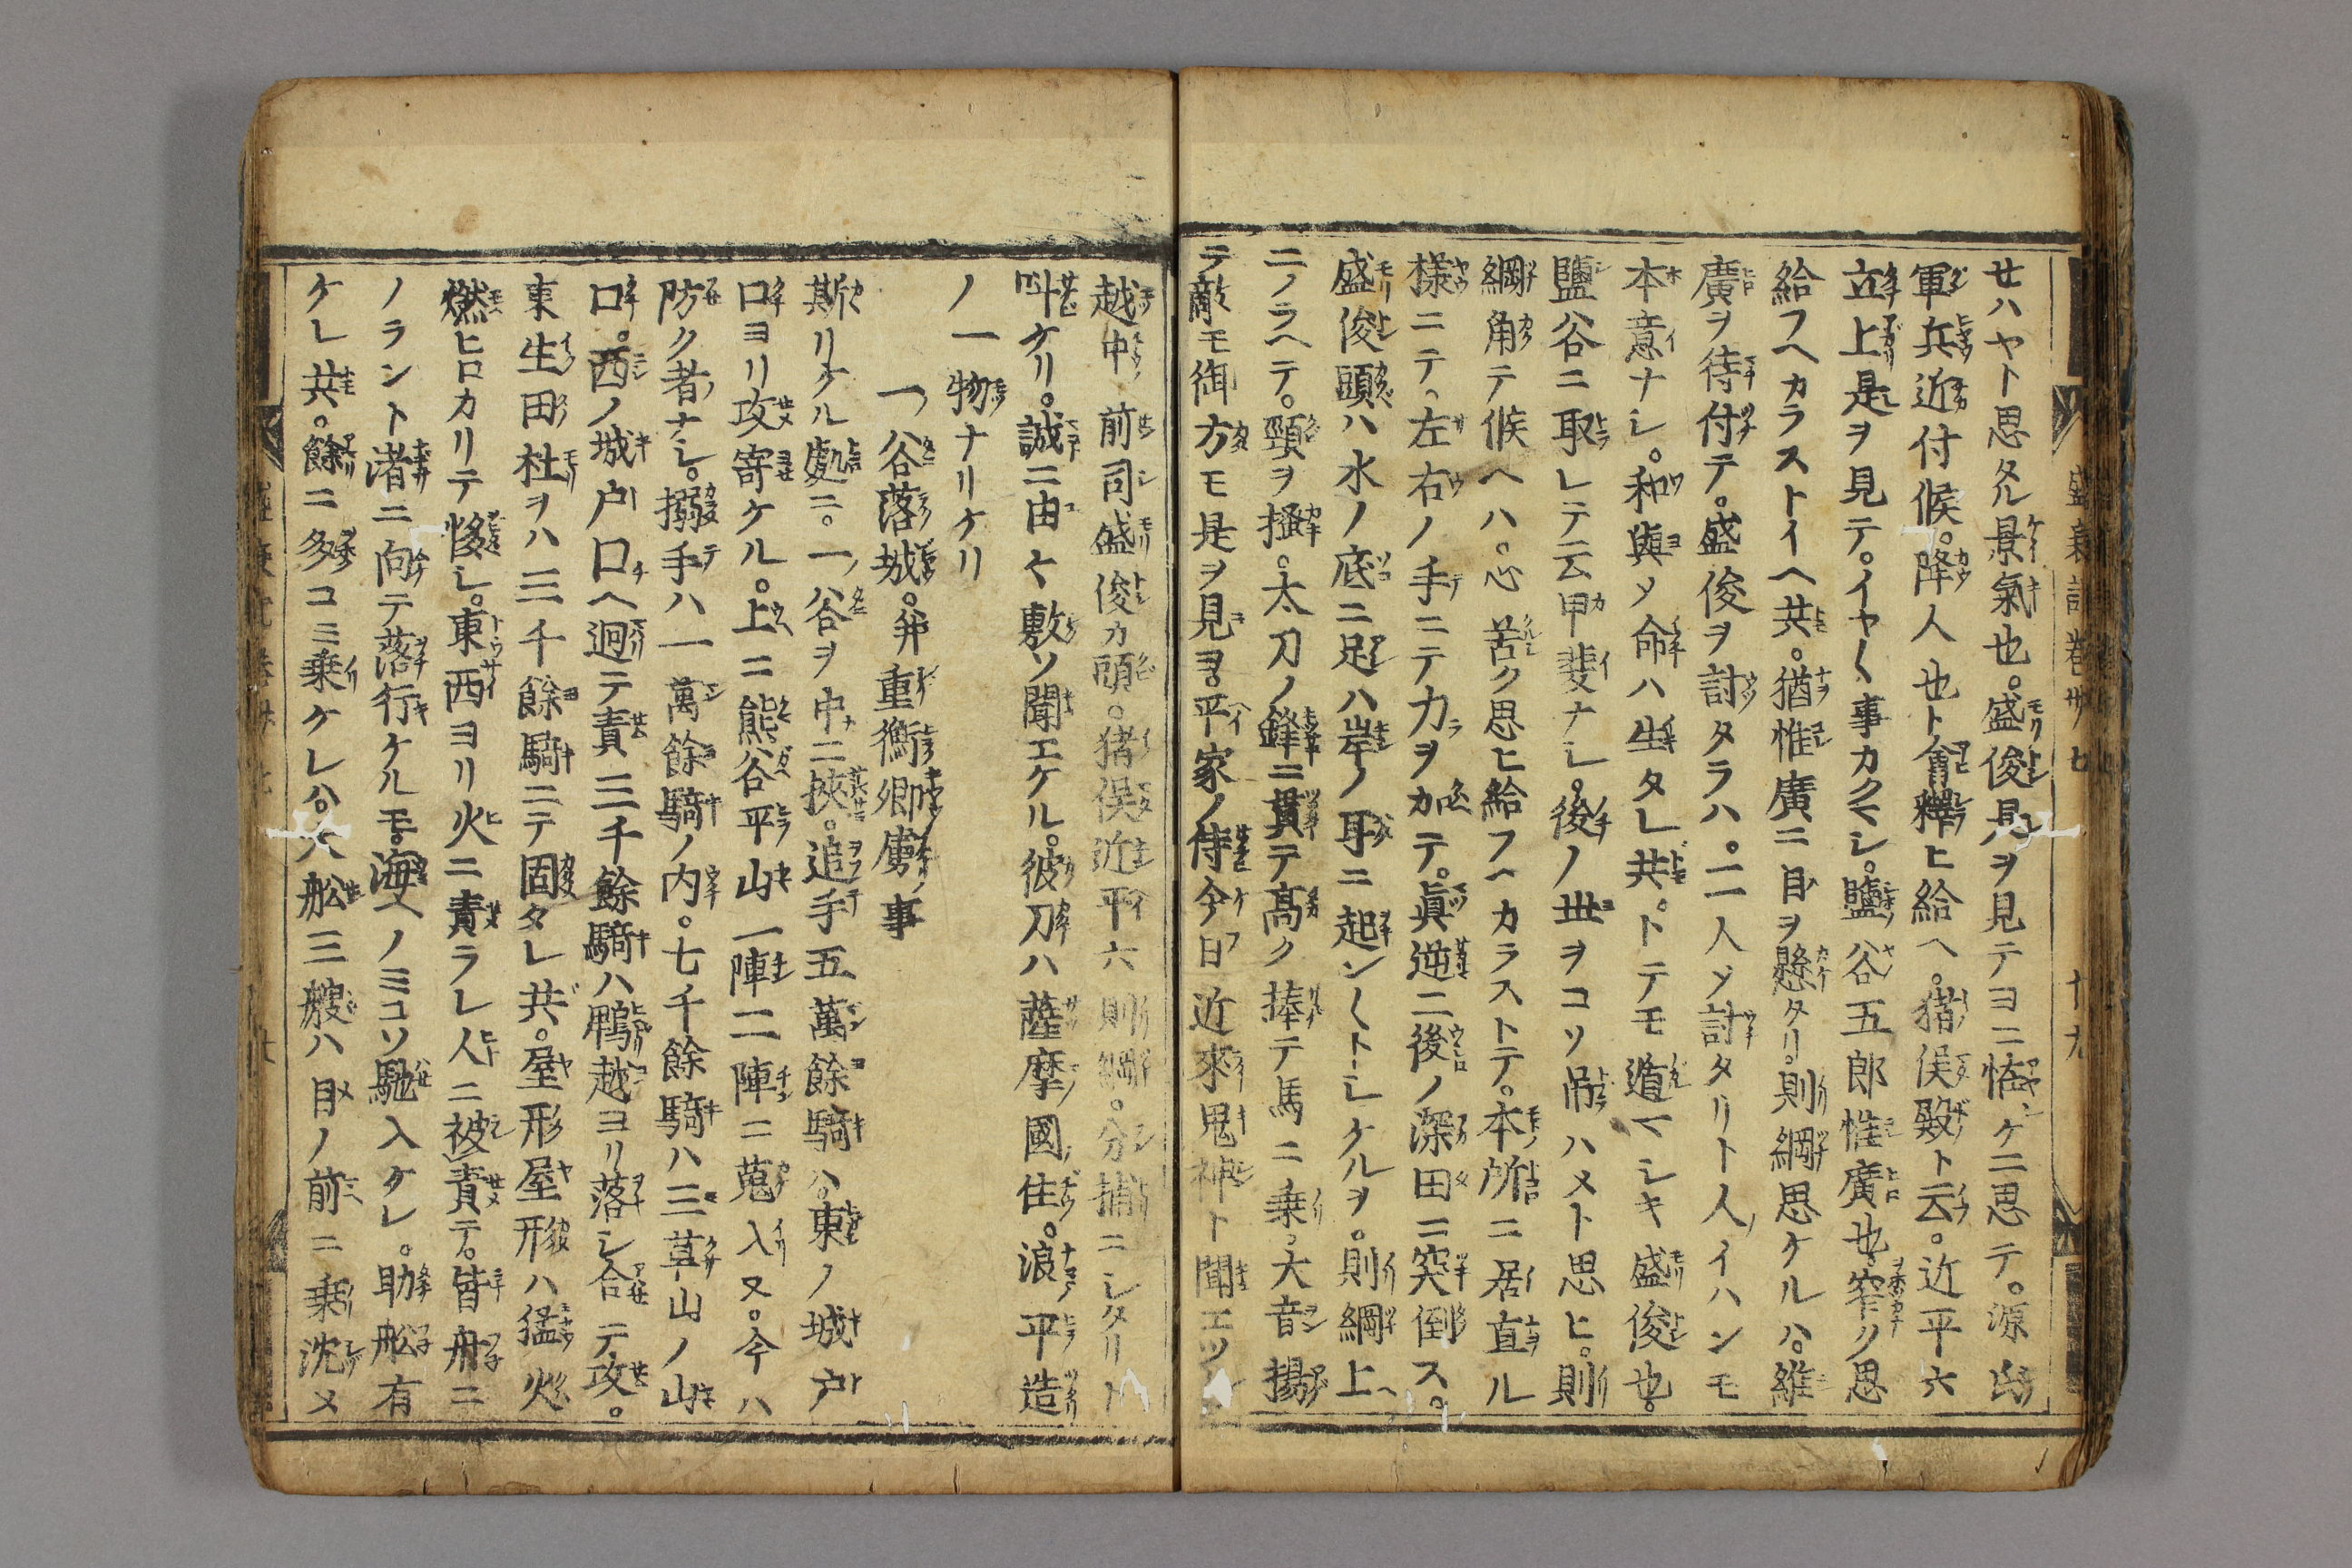 セハヤト思タル景氣也。盛俊是ヲ見テヨニ恠ケニ思テ。源氏
軍兵近付候。降人也ト會釋ヒ給ヘ。猪俣殿ト云。近平六
立上是ヲ見テ。イヤ〳〵事カクマシ。鹽谷五郎惟廣也。窄ク思
給フヘカラストイヘ共。猶惟廣ニ目ヲ懸タリ。則綱思ケルハ。維
廣ヲ待付テ。盛俊ヲ討タラハ。二人メ討タリト人イハンモ
本意ナシ。和與メ命ハ生タレ共。トテモ遁マシキ盛俊也。
鹽谷ニ取レテ云甲斐ナシ。後ノ世ヲコソ吊ハメト思ヒ。則
綱角テ候ヘハ。心苦ク思ヒ給フヘカラストテ。本所ニ居直ル
樣ニテ。左右ノ手ニテ力ヲ加テ。眞逆ニ後ノ深田ニ突倒ス。
盛俊頭ハ水ノ底ニ足ハ岸ノ耳ニ起ン〳〵トシケルヲ。則綱上
ニノラヘテ。頸ヲ搔。太刀ノ鋒ニ貫テ髙ク捧テ馬ニ乗。大音揚
テ敵モ御方モ是ヲ見ヨ。平家ノ侍今日近來鬼神ト聞エツル
越中前司盛俊カ頭。猪俣近平六則綱。分捕ニシタリト
叫ケリ。誠ニ由々敷ソ聞エケル。彼刀ハ薩摩國住。浪平造
ノ一物ナリケリ
一ノ谷落城。并重衡卿虜ノ事
斯リケル處ニ。一ノ谷ヲ中ニ挾。追手五萬餘騎ハ。東ノ城戸
口ヨリ攻寄ケル。上ニ熊谷平山一陣二陣ニ蒐入ヌ。今ハ
防ク者ナシ。搦手ハ一萬餘騎ノ内。七千餘騎ハ三草山ノ山
口。西ノ城戸口ヘ迴テ責三千餘騎ハ鵯越ヨリ落シ合テ攻。
東生田杜ヲハ三千餘騎ニテ固タレ共。屋形屋形ハ猛火
燃ヒロカリテ夥シ。東西ヨリ火ニ責ラレ人ニ被責テ。皆舟ニ
ノラント渚ニ向テ落行ケルモ。海ヘノミコソ馳入ケレ。助舩有
ケレ共。餘ニ多コミ乗ケレハ。大舩三艘ハ目ノ前ニ乗沈メ
盛衰記巻卅七
十九